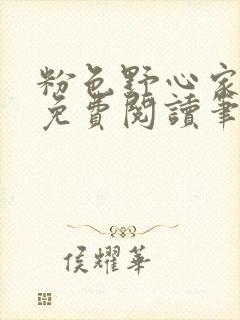 粉色野心家
免費閱讀筆
侯耀華